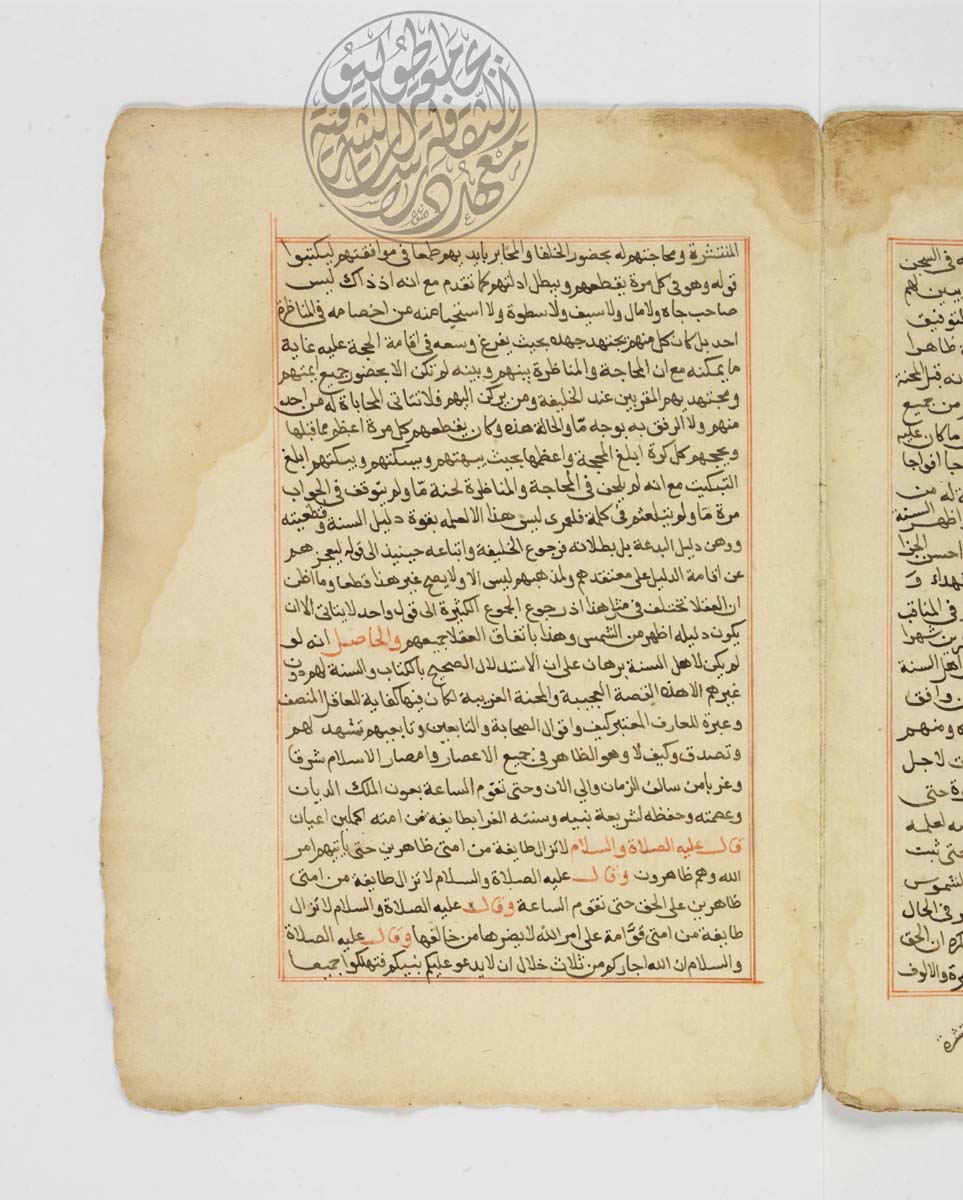 المنتشرة ومحاجتهم له بحضور الخلفا والمحابر بايديهم طمعا في موافقتهم ليكتبوا
قوله وهو في كل مرة يقطعهم ويبطل ادلتهم كما تقدم مع انه اذ ذاك ليس
صاحب جاه ولا مال ولا سيف ولا سطوة ولا استحيا منه من اخصامه في المناظرة
احد بل كان كل منهم يجتهد جهده بحيث يفرغ وسعه في اقامة الحجة عليه غاية
ما يمكنه مع ان المحاجة والمناظرة بينهم وبينه لم تكن الا بحضور جميع ايمتهم
ومجتهديهم المقربين عند الخليفة ومن يركن اليهم فلا تتاتى المحاباة له من احد
منهم ولا الرفق به بوجه مّا والحالة هذه وكان يقطعهم كل مرة اعظم مما قبلها
ويحجهم كل كرة ابلغ الحجة واعظمها بحيث يبهتهم ويسكتهم ويبكتهم ابلغ
التبكيت مع انه لم يلحن في المحاجة والمناظرة لحنة مّا ولم يتوقف في الجواب
مرة مّا ولم يتلعثم في كلمة فلعمري ليس هذا الا لعلمه بقوة دليل السنة وقطعيته
ووهن دليل البدعة بل بطلانه فرجوع الخليفة واتباعه حينيذ الى قوله ليعجزهم
عن اقامة الدليل على معتقدهم ولمذهبهم ليس الا ولا يصح غير هذا قطعا وما اظن
ان العقلا تختلف في مثل هذا اذ رجوع الجموع الكثيرة الى قول واحد لا يتاتى الا ان
يكون دليله اظهر من الشمس وهذا باتفاق العقلا جميعهم والحاصل انه لو
لم يكن لاهل السنة برهان على ان الاستدلال الصحيح بالكتاب والسنة لهم دون
غيرهم الا هذه القصة العجيبة والمحنة الغريبة لكان فيها كفاية للعاقل المنصف
وعبرة للعارف المعتبر كيف واقوال الصحابة والتابعين وتابعيهم تشهد لهم
وتصدق وكيف لا وهو الظاهر في جميع الاعصار وامصار الاسلام شرقا
وغربا من سالف الزمان والي الان وحتى تقوم الساعة بعون الملك الديان
وعصمته وحفظه لشريعة نبيه وسنته الغرا بطايفة من امته اكملين اعيان
قال عليه الصلاة والسلام لا تزال طايفة من امتي ظاهرين حتى ياتيهم امر
الله وهم ظاهرون وقال عليه الصلاة والسلام لا تزال طايفة من امتى
ظاهرين على الحق حتى تقوم الساعة وقال عليه الصلاة والسلام لا تزال
طايفة من امتي قوّامة على امر الله لا يضرها من خالفها وقال عليه الصلاة
والسلام ان الله اجاركم من ثلاث خلال ان لا يدعو عليكم نبيكم فتهلكوا جميعا